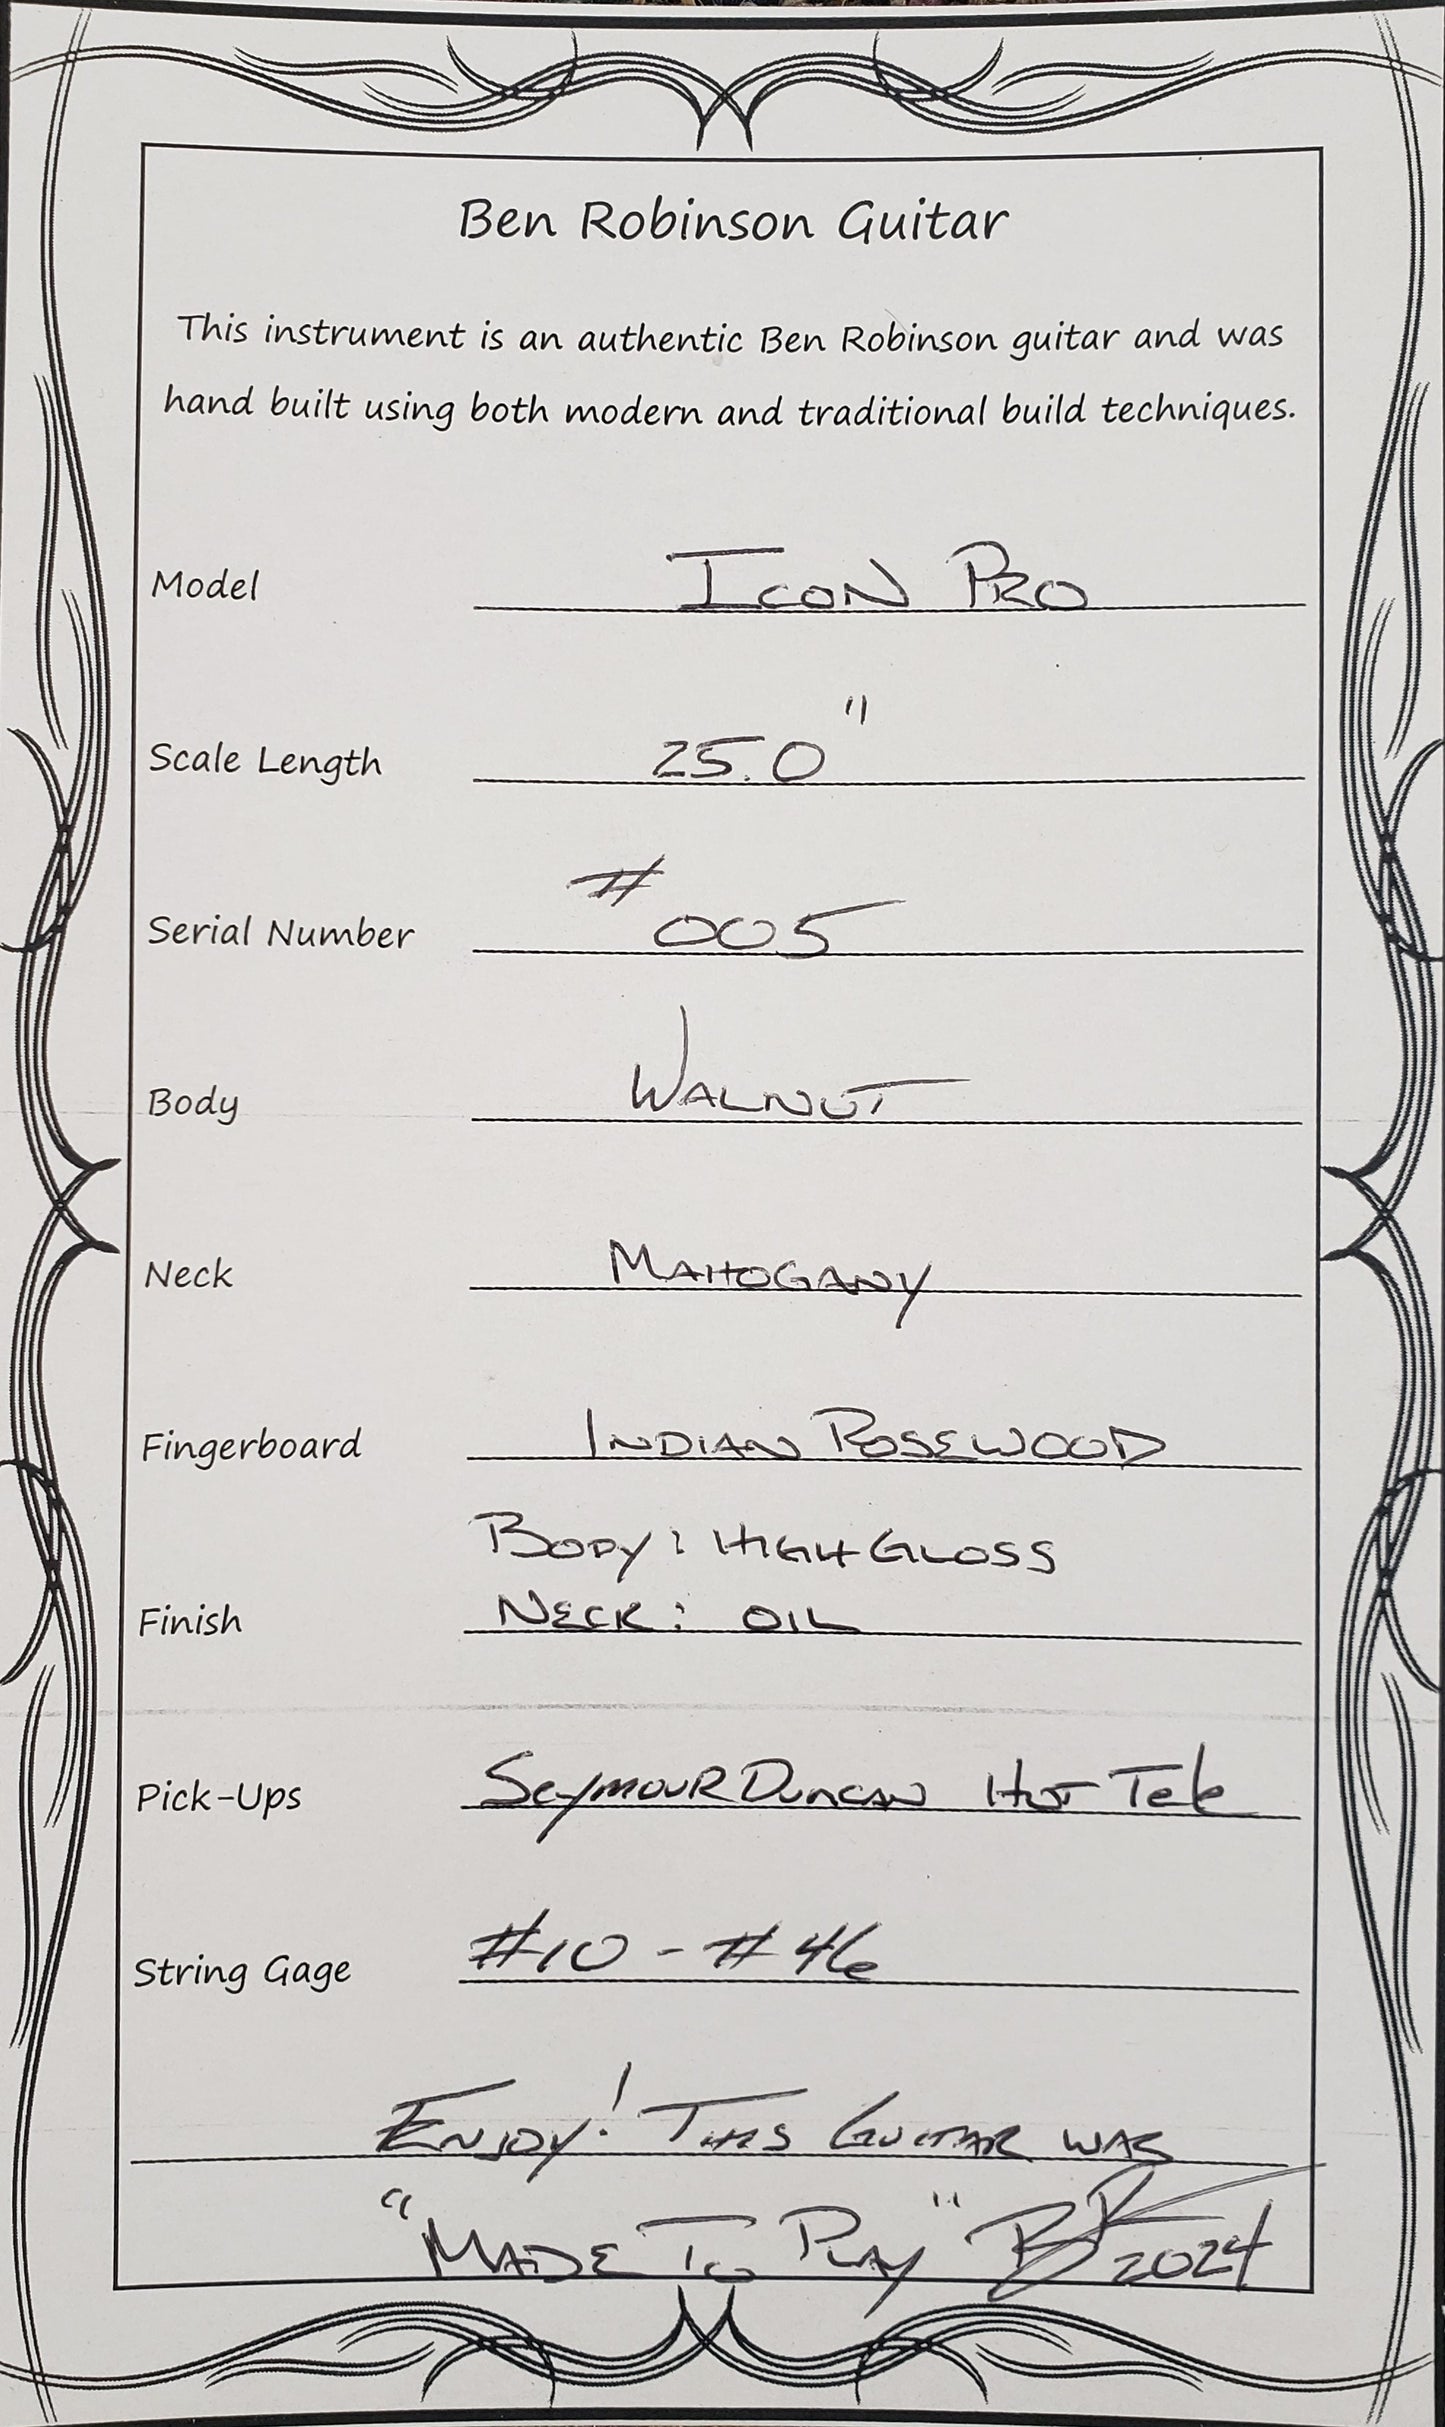 Ben Robinson Guitar
This instrument is an authentic Ben Robinson guitar and was
hand built using both modern and traditional build techniques.
Model ICON PRO
Scale Length 25.0"
Serial Number #005
Body WALNUT
Neck MAHOGANY
Fingerboard INDIAN ROSEWOOD
BODY: HIGH GLOSS
Finish NECK: OIL
Pick-Ups SEYMOUR DUNCAN HOT Tele
String Gage #10 - #46
ENJOY! THIS GUITAR WAS
"MADE TO PLAY" BR 2024